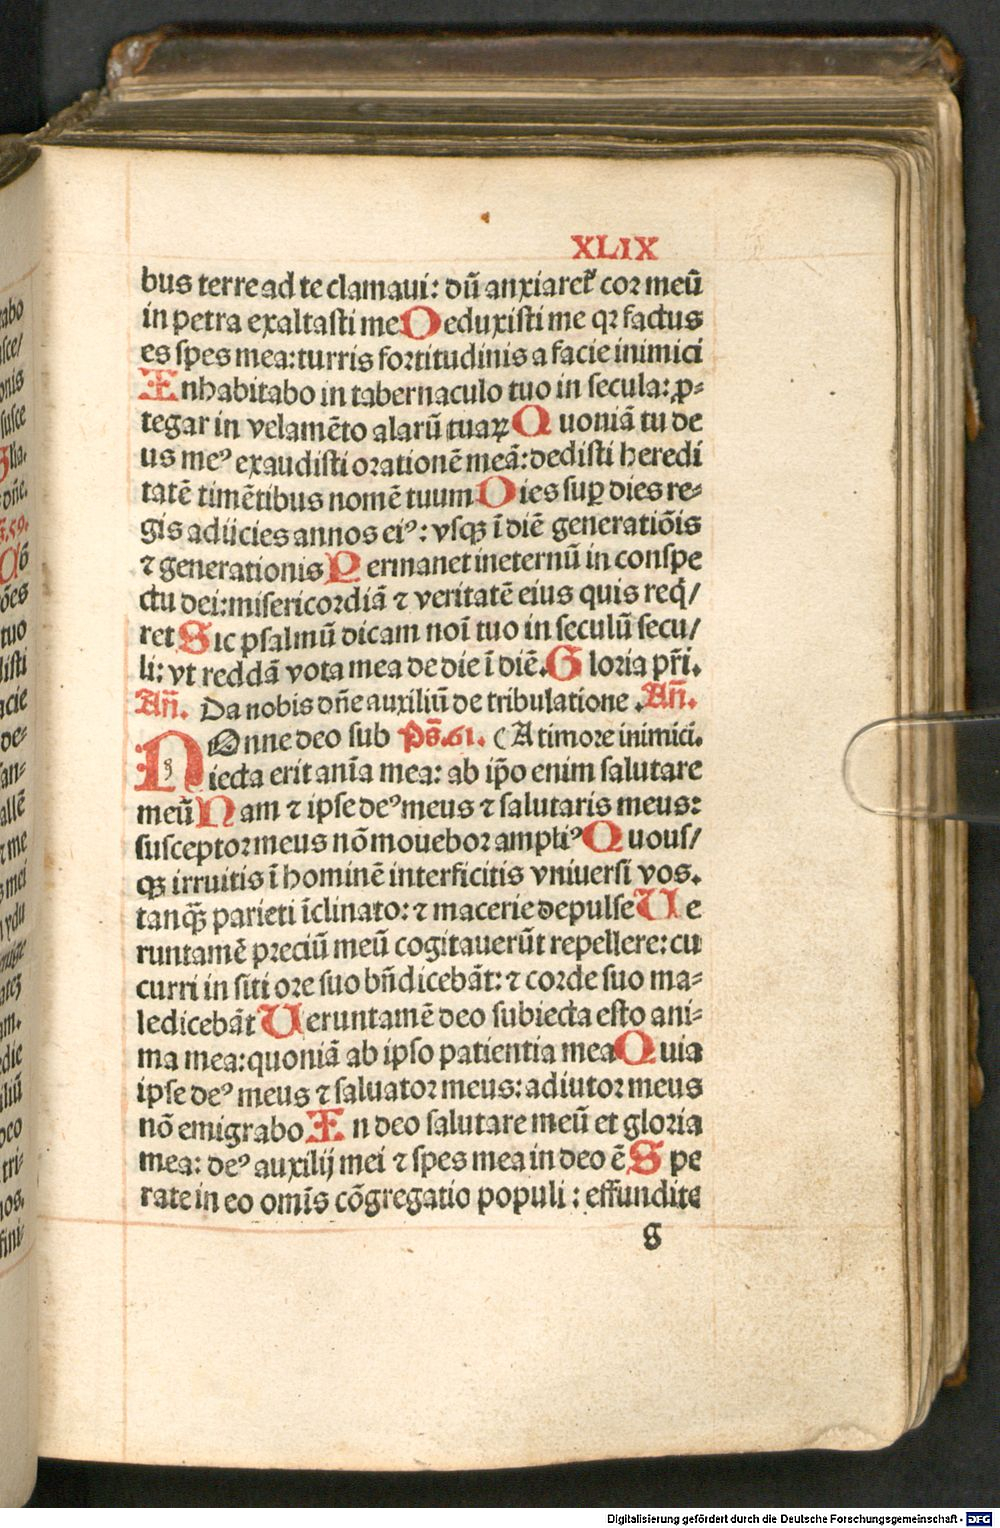 XLIX
bus terre ad te clamaui: dũ anxiareť cor meũ
in petra exaltasti me Deduxisti me qꝛ factus
es spes mea: turris fortitudinis a facie inimici
Inhabitabo in tabernaculo tuo in secula: ꝓ-
tegar in velamẽto alarũ tuaꝝ Quoniã tu de
us me⁹ exaudisti orationẽ meã: dedisti heredi
tatẽ timẽtibus nomẽ tuum Dies suꝑ dies re-
gis adiicies annos ei⁹: vsqꝫ ĩ diẽ generatiõis
⁊ generationis Permanet ineternũ in conspe
ctu dei: misericordiã ⁊ veritatẽ eius quis req̃/
ret Sic psalmũ dicam noĩ tuo in seculũ secu/
li: vt reddã vota mea de die ĩ diẽ. Gloria pr̃i.
Añ. Da nobis dñe auxiliũ de tribulatione. Añ.
NOnne deo sub Ps̃.61. (A timore inimici.
iecta erit anĩa mea: ab ip̃o enim salutare
meũ Nam ⁊ ipse de⁹ meus ⁊ salutaris meus:
susceptor meus nõ mouebor ampli⁹ Quous/
qꝫ irruitis ĩ hominẽ interficitis vniuersi vos.
tanqꝫ̃ parieti ĩclinato: ⁊ macerie depulse Ue
runtamẽ preciũ meũ cogitauerũt repellere: cu
curri in siti ore suo bñdicebãt: ⁊ corde suo ma-
ledicebãt Ueruntamẽ deo subiecta esto ani-
ma mea: quoniã ab ipso patientia mea Quia
ipse de⁹ meus ⁊ saluator meus: adiutor meus
nõ emigrabo In deo salutare meũ et gloria
mea: de⁹ auxilij mei ⁊ spes mea in deo ẽ Spe
rate in eo omĩs cõgregatio populi: effundite
g
Digitalisierung gefördert durch die Deutsche Forschungsgemeinschaft - DFG